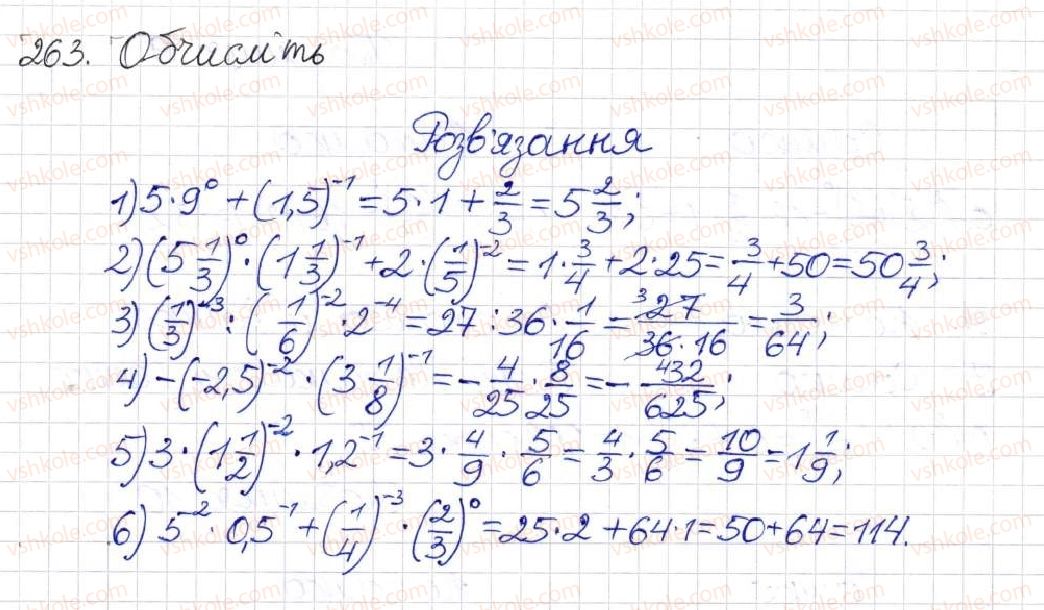 263. Обчисліть
Розв'язання
1) 5·9⁰ + (1,5)⁻¹ = 5·1 + 2/3 = 5 2/3;
2) (5 1/3)⁰ · (1 1/3)⁻¹ + 2·(1/5)⁻² = 1·3/4 + 2·25 = 3/4 + 50 = 50 3/4;
3) (1/3)⁻³ : (1/6)⁻² · 2⁻⁴ = 27 : 36 · 1/16 = ³27/36·16 = 3/64;
4) -(-2,5)⁻² · (3 1/8)⁻¹ = - 4/25 · 8/25 = - 432/625;
5) 3·(1 1/2)⁻² · 1,2⁻¹ = 3 · 4/9 · 5/6 = 4/3 · 5/6 = 10/9 = 1 1/9;
6) 5⁻² · 0,5⁻¹ + (1/4)⁻³ · (2/3)⁰ = 25·2 + 64·1 = 50 + 64 = 114.